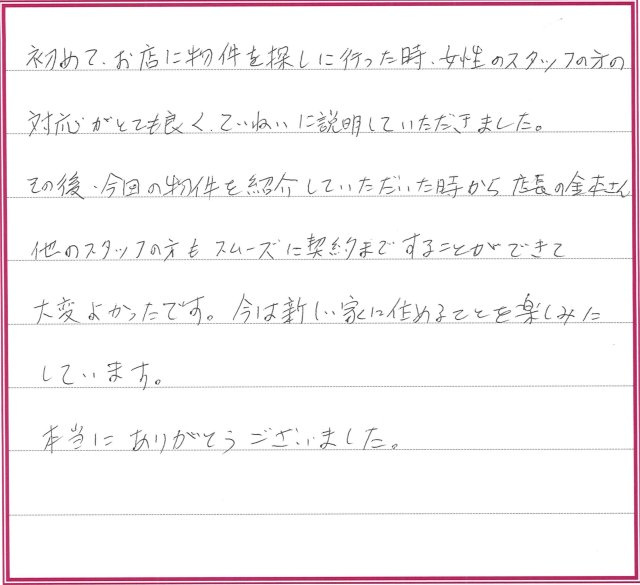 初めて、お店に物件を探しに行った時、女性のスタッフの方の
対応がとても良く、ていねいに説明していただきました。
その後、今回の物件を紹介していただいた時から店長の金本さん
他のスタッフの方もスムーズに契約まですることができて
大変よかったです。今は新しい家に住めることを楽しみに
しています。
本当にありがとうございました。